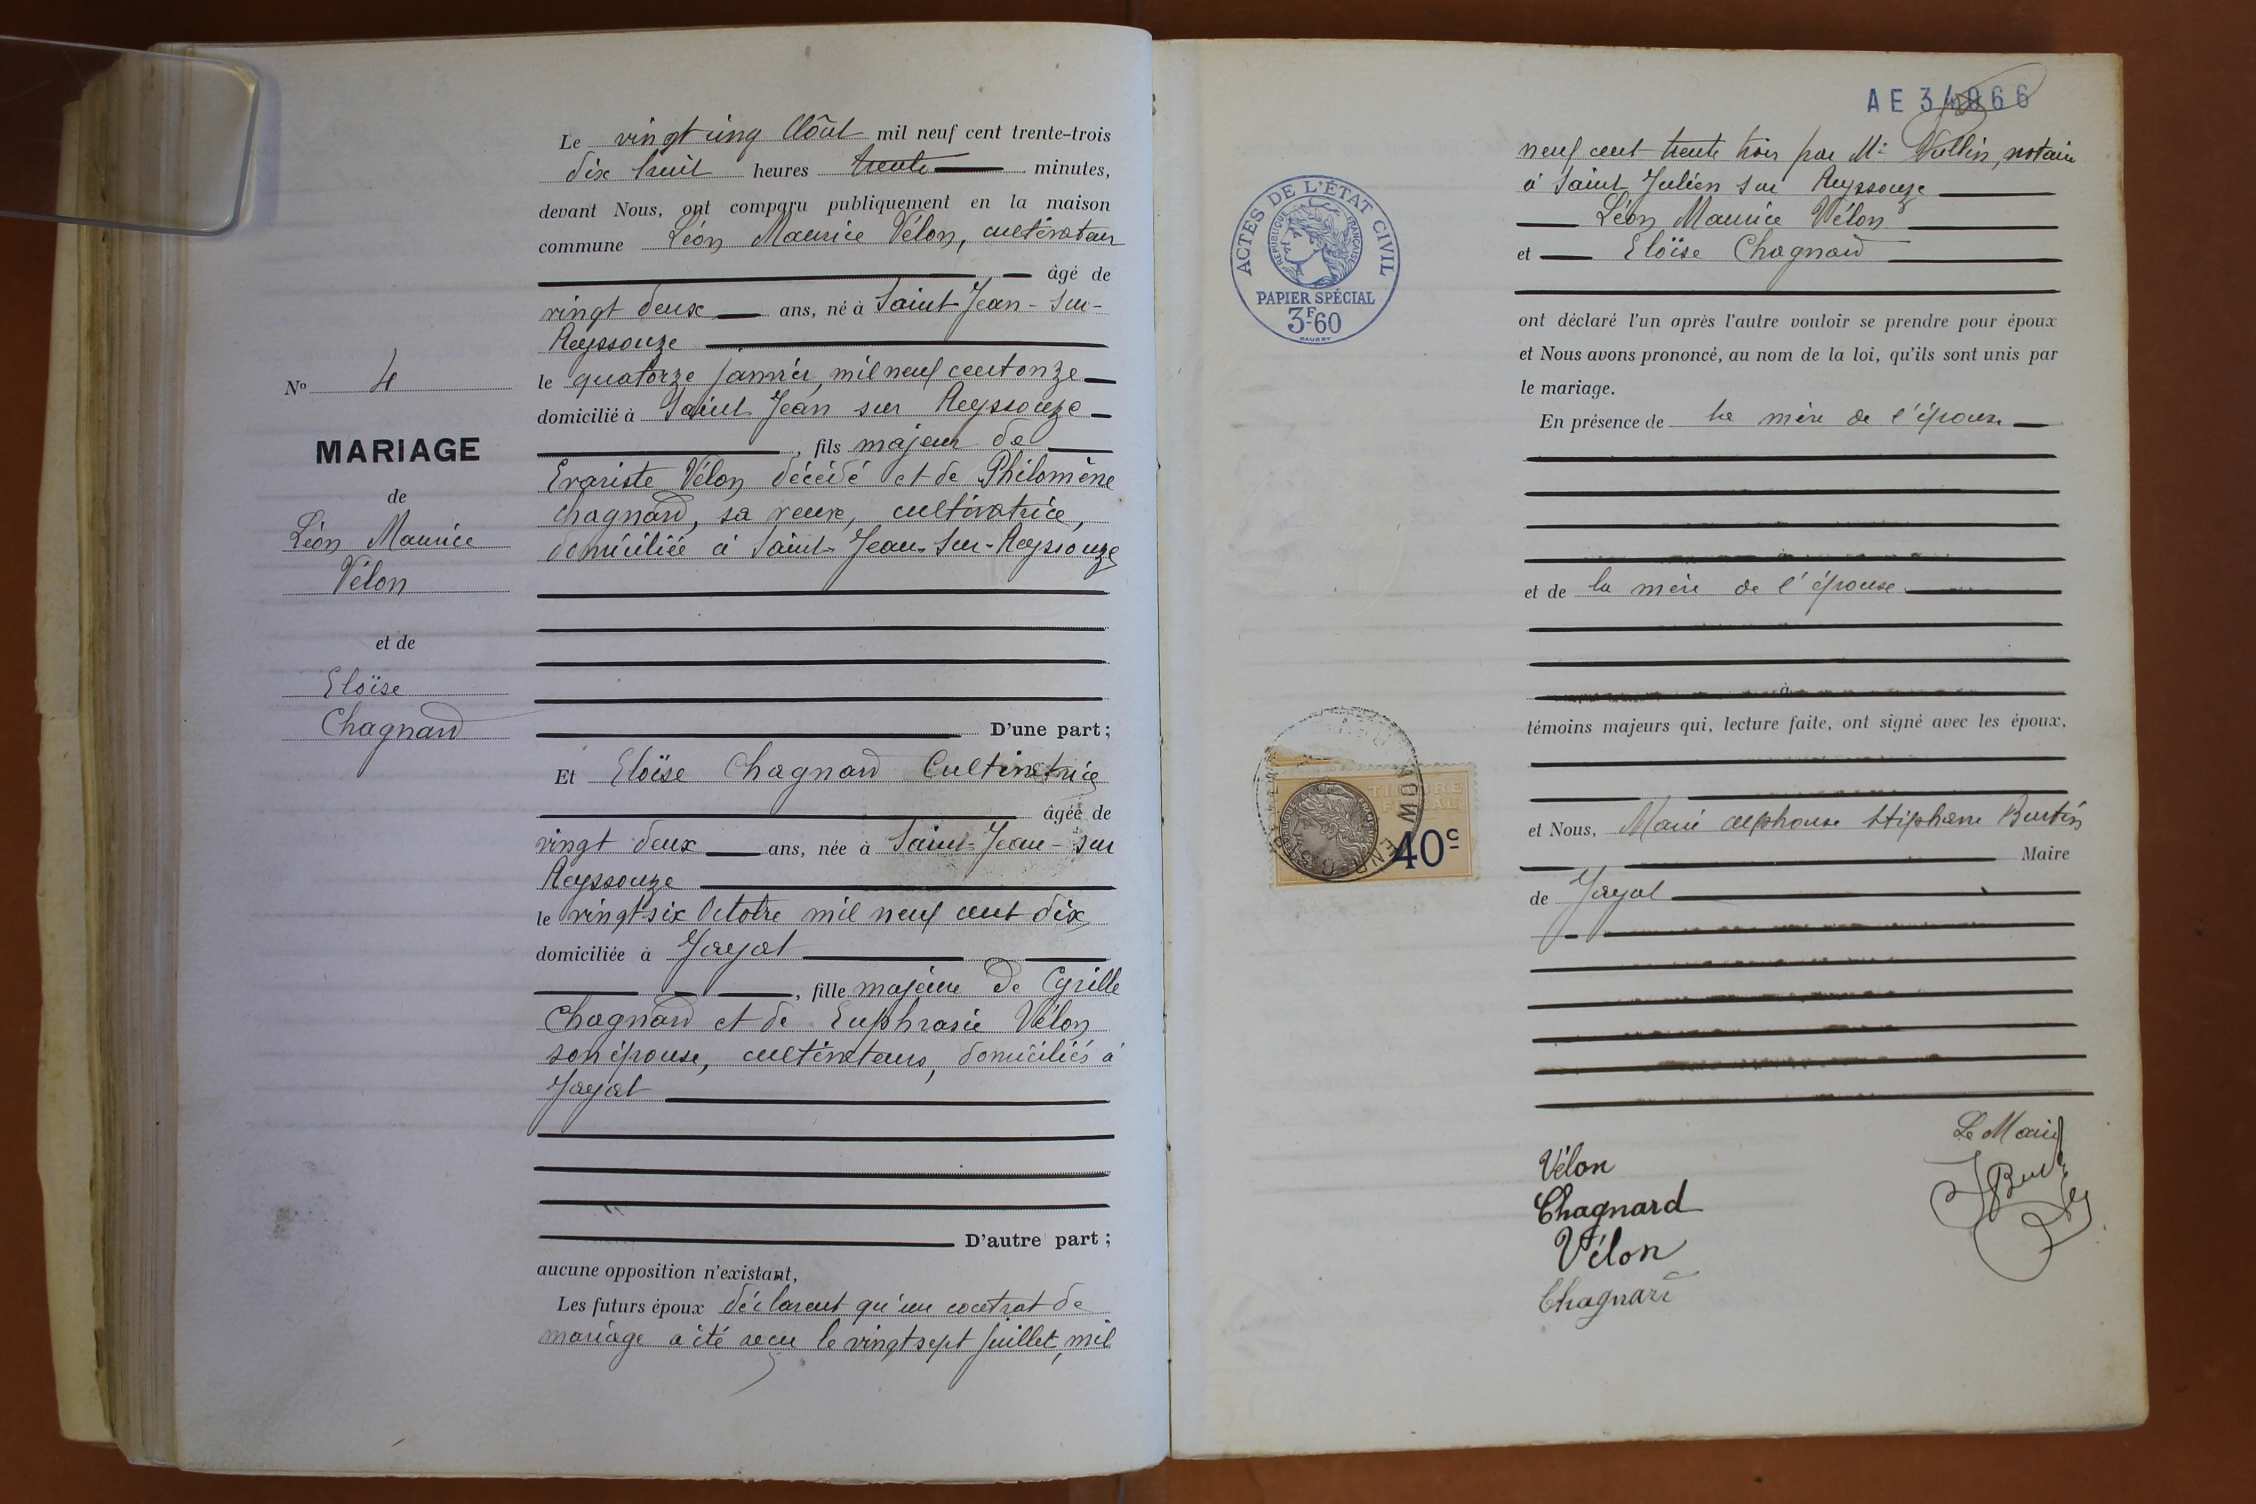 Le vingt cinq Août mil neuf cent trente-trois
dix huit heures trente minutes,
devant Nous, ont comparu publiquement en la maison
commune Léon Maurice Vélon, cultivateur
âgé de
vingt deux ans, né à Saint-Jean-sur-
Reyssouze
le quatorze janvier, mil neuf cent onze
domicilié à Saint Jean sur Reyssouze
, fils majeur de
Evariste Vélon décédé et de Philomène
Chagnard, sa veuve, cultivatrice,
domiciliée à Saint-Jean-sur-Reyssouze
D'une part;
Et Eloïse Chagnard Cultivatrice
âgée de
vingt deux ans, née à Saint-Jean-sur
Reyssouze
le vingt-six Octobre mil neuf cent dix
domiciliée à Jayat
, fille majeure de Cyrille
Chagnard et de Euphrasie Vélon
son épouse, cultivateurs, domiciliés à
Jayat
D'autre part;
aucune opposition n'existant,
Les futurs époux déclarent qu'un contrat de
mariage a été reçu le vingt sept juillet, mil
N° 4
MARIAGE
de
Léon Maurice
Vélon
et de
Eloïse
Chagnard
AE 34066
neuf cent trente trois par Me Vullin, notaire
à Saint Julien sur Reyssouze
Léon Maurice Vélon
et Eloïse Chagnard
ont déclaré l'un après l'autre vouloir se prendre pour époux
et Nous avons prononcé, au nom de la loi, qu'ils sont unis par
le mariage.
En présence de la mère de l'épouse
et de la mère de l'épouse
à
témoins majeurs qui, lecture faite, ont signé avec les époux,
et Nous, Marie Alphonse Stéphane Burtin
Maire
de Jayat
Le Maire
Vélon
Chagnard
Vélon
Chagnard
ACTES DE L'ÉTAT CIVIL
RÉPUBLIQUE FRANÇAISE
PAPIER SPÉCIAL
3F-60
TIMBRE
FISCAL
40c